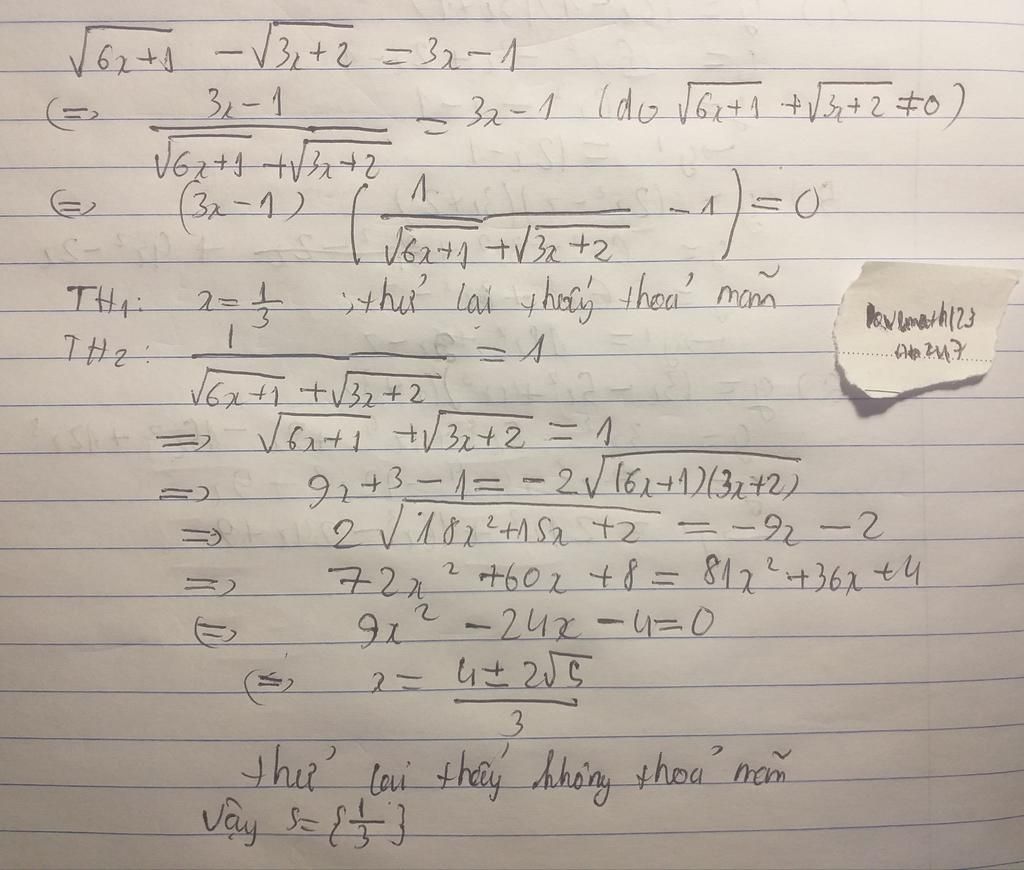 √(6x+1) - √(3x+2) = 3x - 1
(=) (3x-1)/(√(6x+1) + √(3x+2)) = 3x - 1 (do √(6x+1) + √(3x+2) ≠ 0)
(=) (3x-1) (1/(√(6x+1) + √(3x+2)) - 1) = 0
TH1: x = 1/3 ; thử lại thấy thoả mãn
TH2: 1/(√(6x+1) + √(3x+2)) = 1
=> √(6x+1) + √(3x+2) = 1
=> 9x + 3 - 1 = -2√((6x+1)(3x+2))
=> 2√(18x² + 15x + 2) = -9x - 2
=> 72x² + 60x + 8 = 81x² + 36x + 4
(=) 9x² - 24x - 4 = 0
(=) x = (4 ± 2√5)/3
thử lại thấy không thoả mãn
Vậy S = {1/3}